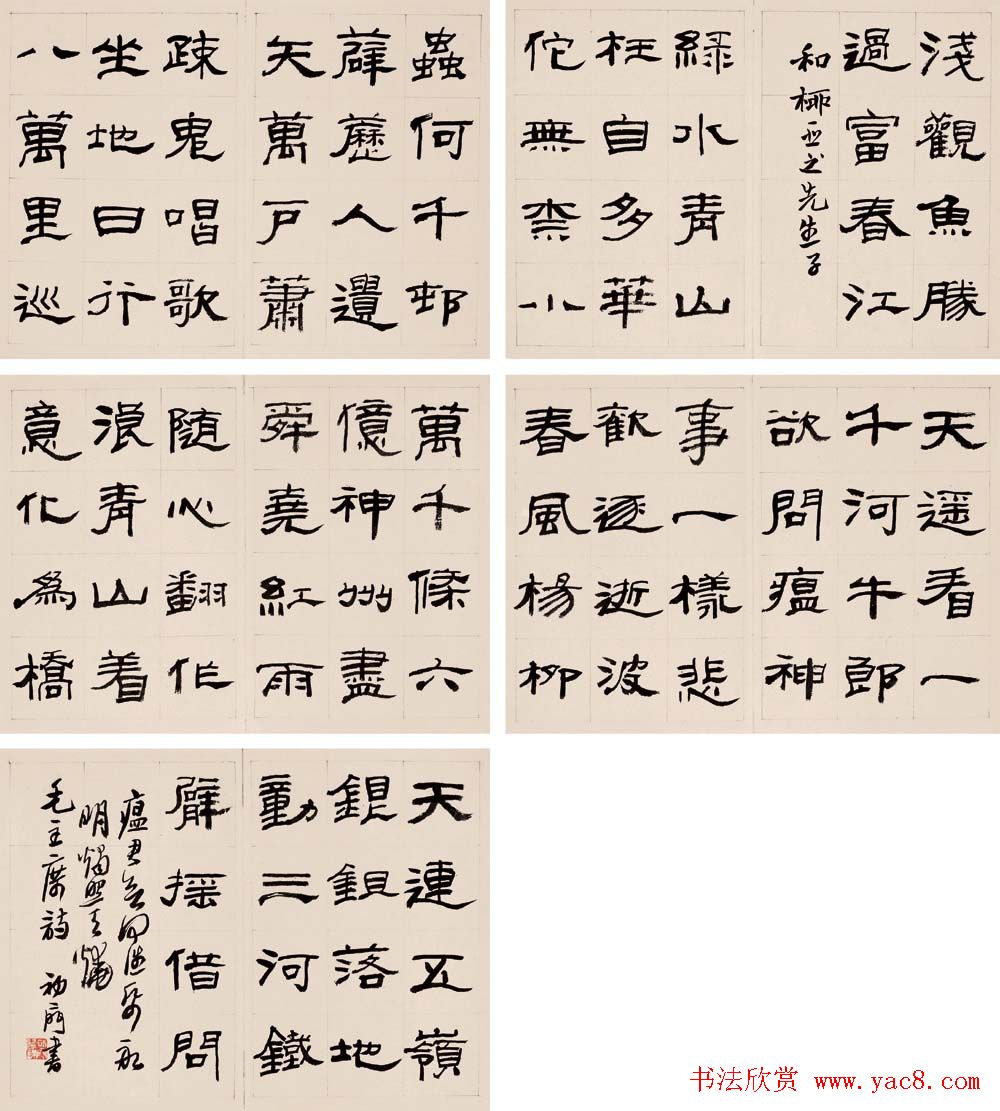 淺觀魚勝
過富春江
和柳亞之先生子
綠水青山
枉自多華
佗無柰小
蟲何千邨
薜藶人遺
矢萬戶蕭
疎鬼唱歌
坐地日行
八萬里巡
天遥看一
千河牛郎
欲問瘟神
事一樣悲
歡逐逝波
春風楊柳
萬千條六
億神州盡
舜堯紅雨
隨心翻作
浪青山着
意化為橋
天連五嶺
銀鉏落地
動三河鐵
臂摇借問
瘟君欲何往帋船
明燭照天燒
毛主席詩 書
书法欣赏 www.yac8.com